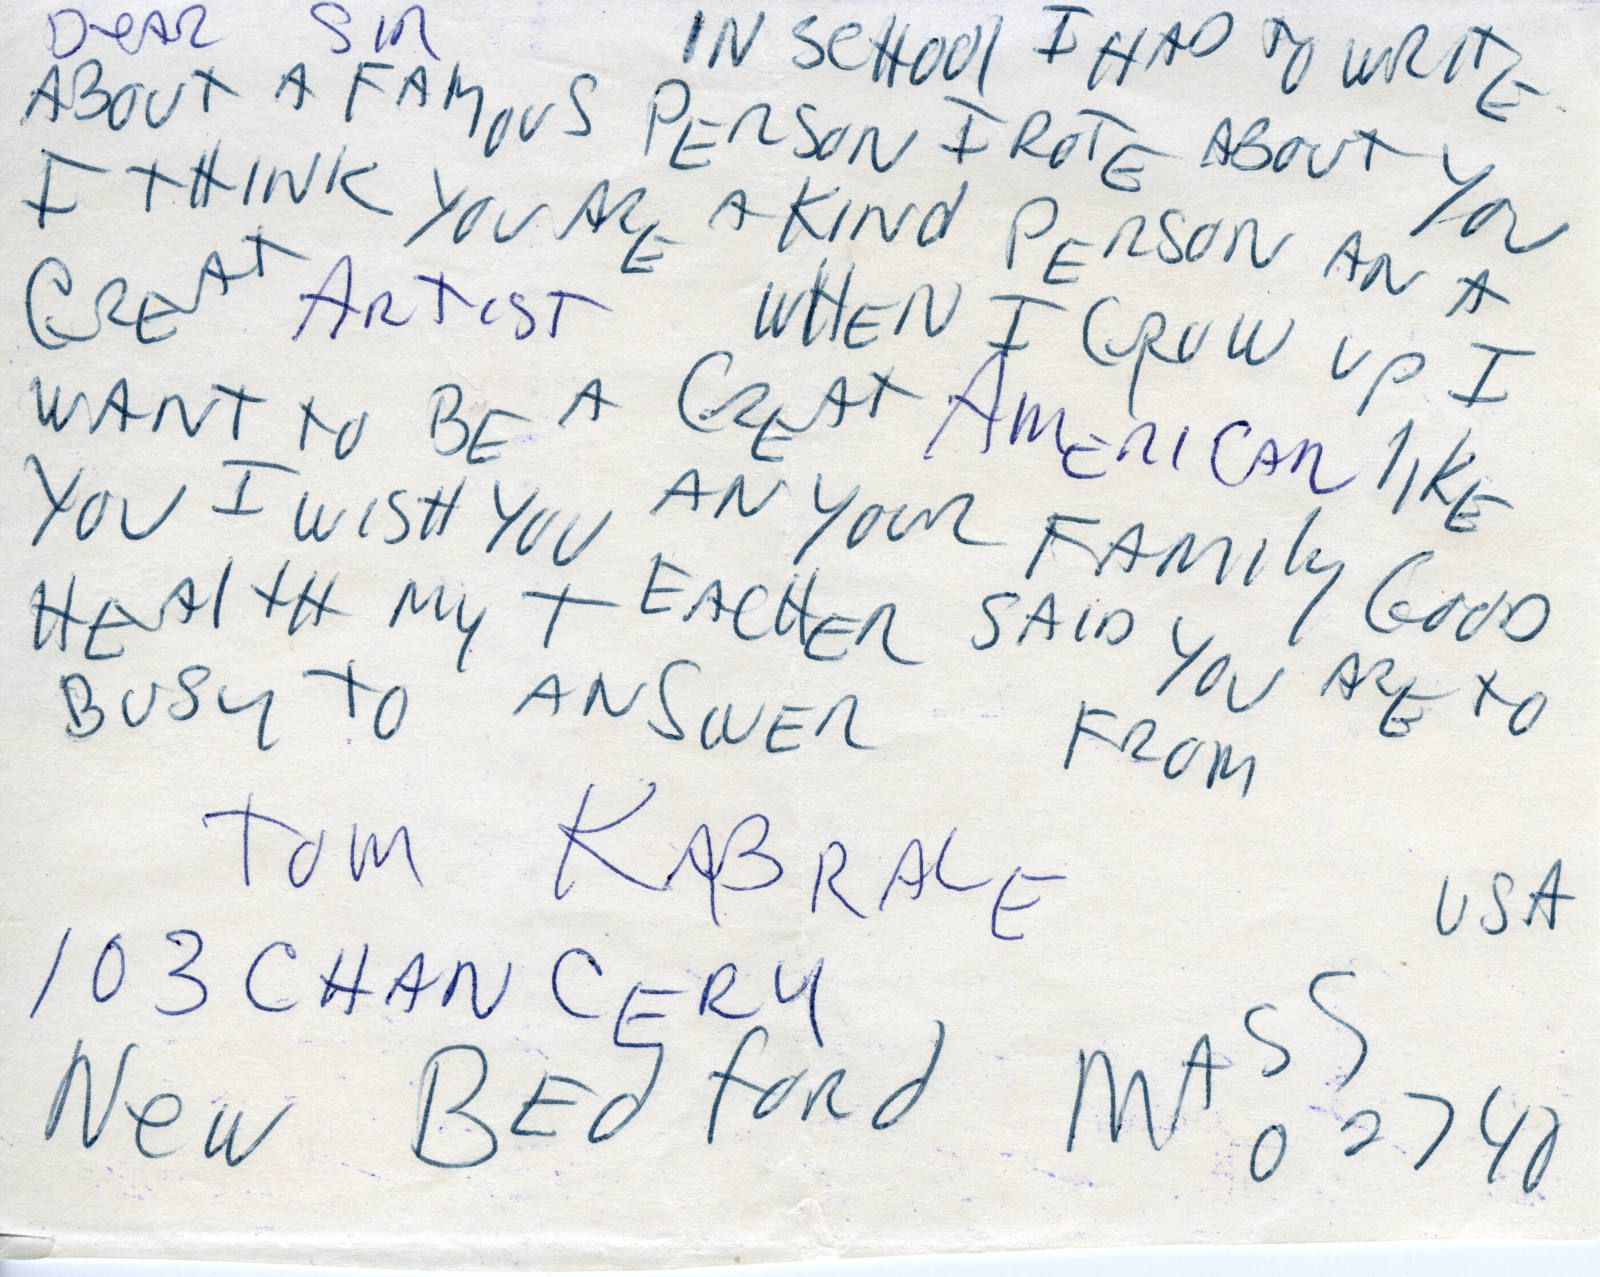 Dear Sir IN SCHOOl I HAD TO WRITE
ABOUT A FAMOUS PERSON I ROTE ABOUT YOU
I THINK YOU ARE A KIND PERSON AN A
GREAT ARTIST WHEN I GROW UP I
WANT TO BE A GREAT AMERICAN lIKE
YOU I WISH YOU AN YOUR FAMIly GOOD
HEAlTH MY TEACHER SAID YOU ARE TO
BUSY TO ANSWER FROM
TOM KABRALE
USA
103 CHANCERY
New BEdford MASS
02740